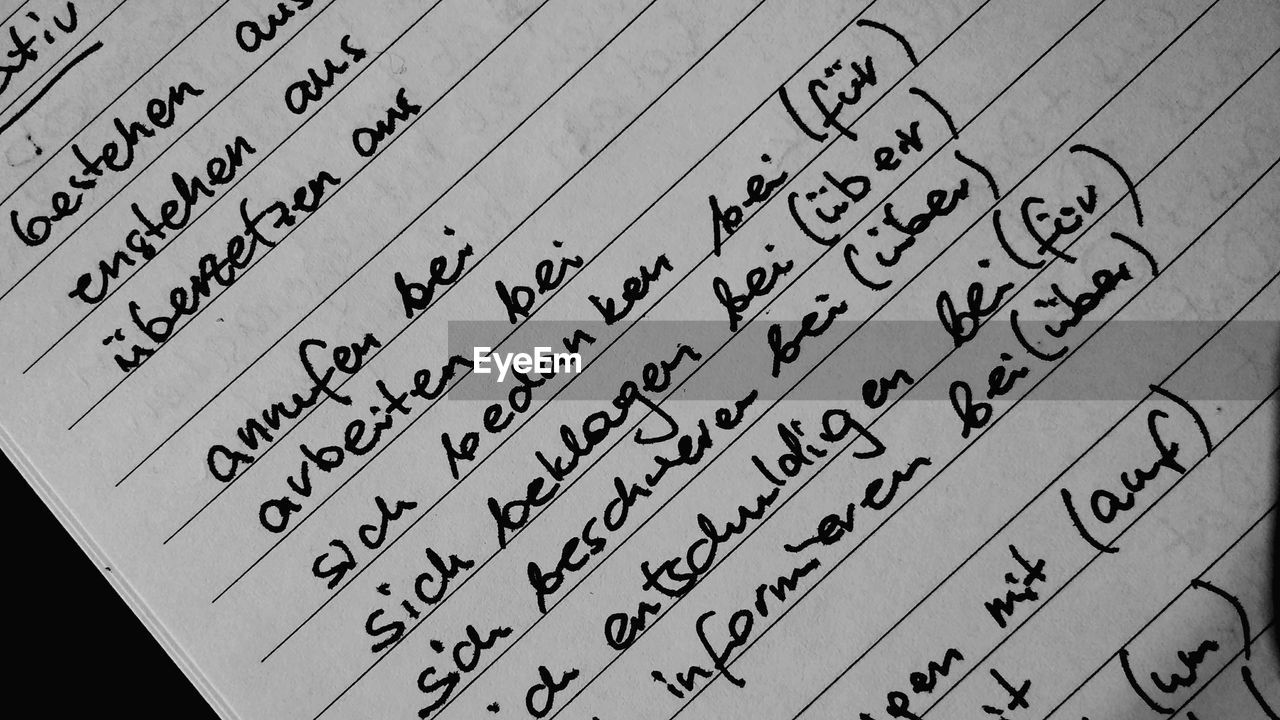 bestehen aus
enstehen aus
übersetzen aus
anrufen bei
arbeiten bei
sich bedanken bei (für)
sich beklagen bei (über)
sich beschweren bei (über)
entschuldigen bei (für)
informieren bei (über)
mit (auf)
(um)
EyeEm